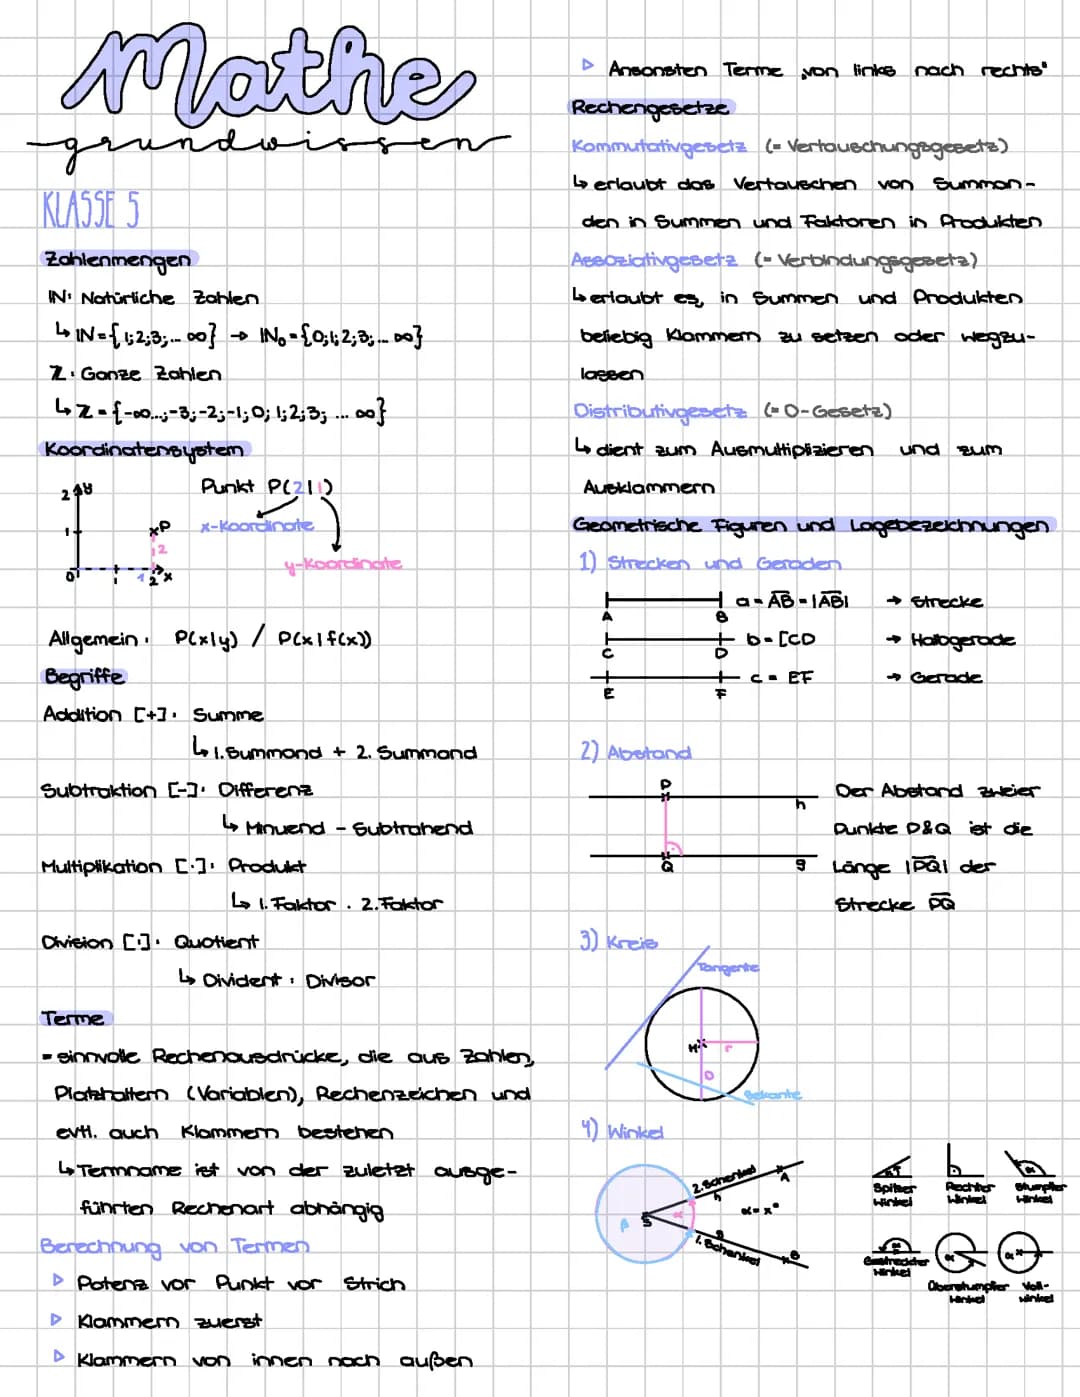 Mathe
grundwissen
KLASSE 5
Zahlenmengen
ℕ: Natürliche Zahlen
↳ ℕ = {1;2;3;... ∞} → ℕ₀ = {0;1;2;3;... ∞}
ℤ: Ganze Zahlen
↳ ℤ = {-∞...;-3;-2;-1;0;1;2;3; ... ∞}
Koordinatensystem
Punkt P(2|1)
x-Koordinate
y-Koordinate
2 y
1 xP
2
0 1 2 x
Allgemein: P(x|y) / P(x|f(x))
Begriffe
Addition [+]: Summe
↳ 1. Summand + 2. Summand
Subtraktion [-]: Differenz
↳ Minuend - Subtrahend
Multiplikation [·]: Produkt
↳ 1. Faktor · 2. Faktor
Division [:]: Quotient
↳ Divident : Divisor
Terme
= sinnvolle Rechenausdrücke, die aus Zahlen,
Platzhaltern (Variablen), Rechenzeichen und
evtl. auch Klammern bestehen
↳ Termname ist von der zuletzt ausge-
führten Rechenart abhängig
Berechnung von Termen
▷ Potenz vor Punkt vor Strich
▷ Klammern zuerst
▷ Klammern von innen nach außen
▷ Ansonsten Terme „von links nach rechts"
Rechengesetze
Kommutativgesetz (= Vertauschungsgesetz)
↳ erlaubt das Vertauschen von Summan-
den in Summen und Faktoren in Produkten
Assoziativgesetz (= Verbindungsgesetz)
↳ erlaubt es, in Summen und Produkten
beliebig Klammern zu setzen oder wegzu-
lassen
Distributivgesetz (= D-Gesetz)
↳ dient zum Ausmultiplizieren und zum
Ausklammern
Geometrische Figuren und Lagebezeichnungen
1) Strecken und Geraden
A B a = A̅B̅ = |A̅B̅| → Strecke
C D b = [CD → Halbgerade
E F c = EF → Gerade
2) Abstand
P h
Q g
Der Abstand zweier
Punkte P&Q ist die
Länge |P̅Q̅| der
Strecke P̅Q̅
3) Kreis
Tangente
M r
D
Sekante
4) Winkel
2. Schenkel
h A
α = x°
β S α
g B
1. Schenkel
Spitzer Winkel
Rechter Winkel
Stumpfer Winkel
Gestreckter Winkel
Überstumpfer Winkel
Voll-
winkel